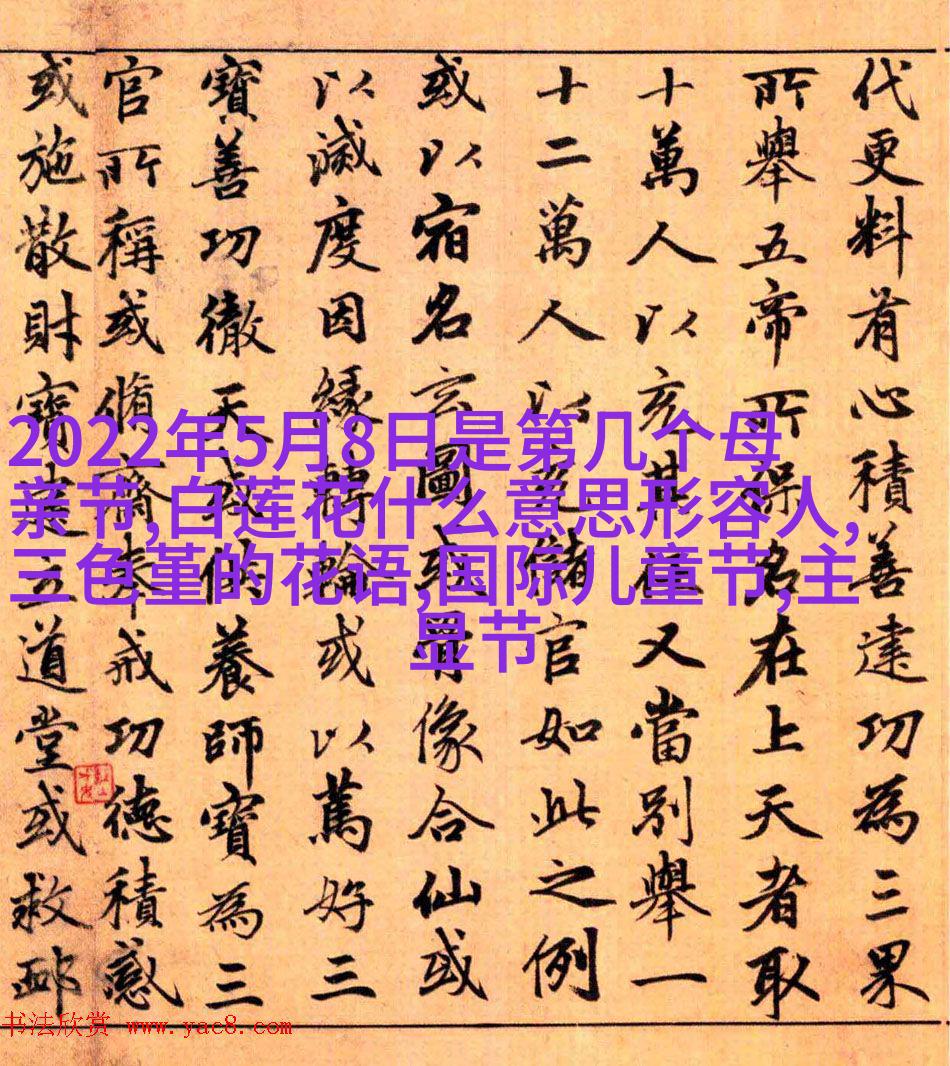 代更料有心積善建功為三果
所舉五帝所保名在上天者取
十萬人以亥其又當別舉一
十二萬人以儲官如此之例
或以宿名玄圖或骨像合仙或
以滅度因緣轉輪或以篤好三
寶善功徹天或供養師寶為三
官所稱或脩齋奉戒功德積感
或施散財寶建立道堂或救
2022年5月8日是第几个母
亲节,白莲花什么意思形容人,
三色堇的花语,国际儿童节,主
显节
书法欣赏 www.yac8.com